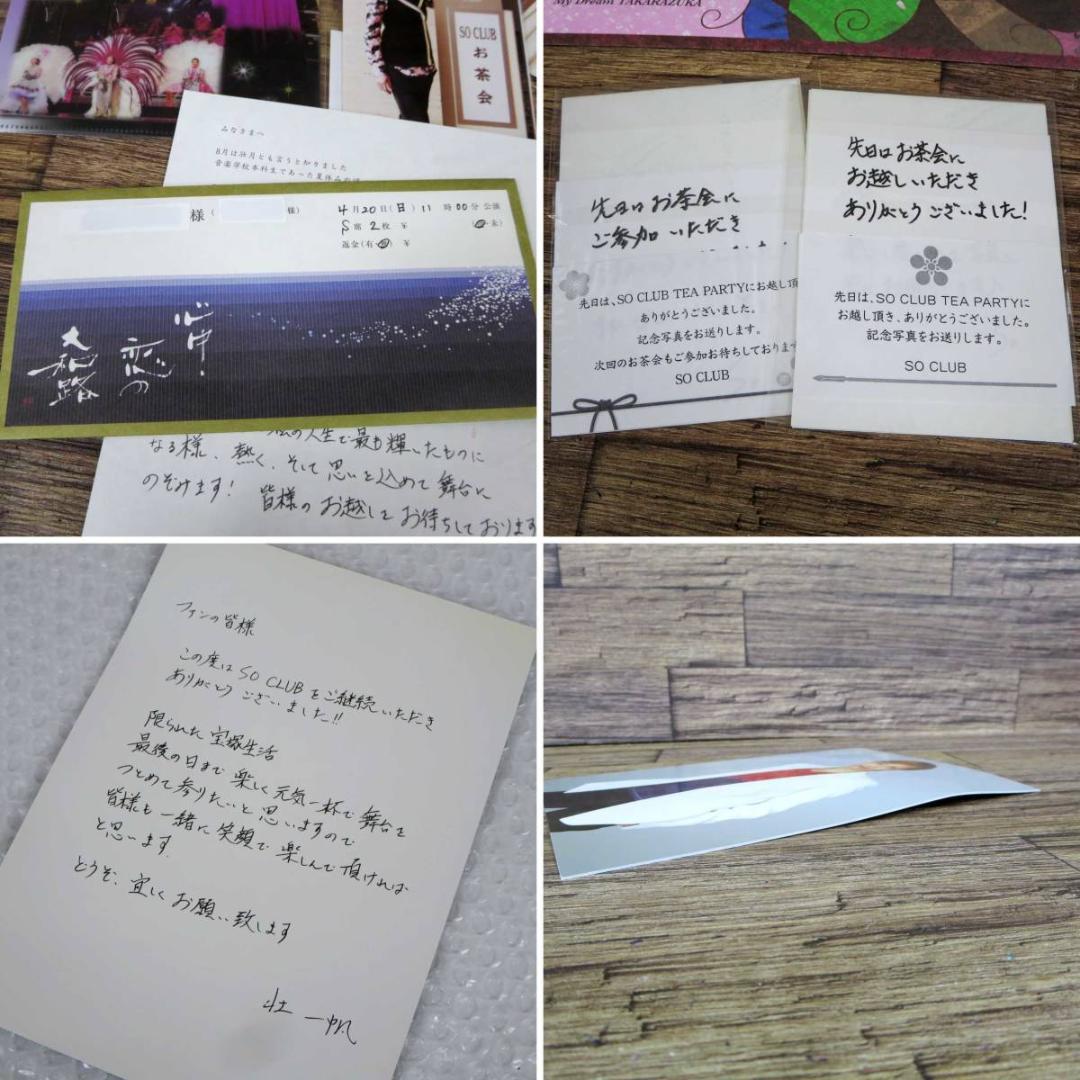 SO CLUB
お茶会
みなさまへ
8月は壮月とも言うと知りました
音楽学校本科生であった夏休みの
様(
様)
4月20日(日)11時00分公演
S席2枚 ¥
返金(有・
¥
心中・
恋の
大和路
私の人生で最も輝いたものに
なる様、熱く、そして思いを込めて舞台に
のぞみます! 皆様のお越しをお待ちしております
My Dream TAKARAZUKA
先日はお茶会に
ご参加いただき
先日は、SO CLUB TEA PARTYにお越し頂
ありがとうございました。
記念写真をお送りします。
次回のお茶会もご参加お待ちしております
SO CLUB
先日はお茶会に
お越しいただき
ありがとうございました!
先日は、SO CLUB TEA PARTYに
お越し頂き、ありがとうございました。
記念写真をお送りします。
SO CLUB
ファンの皆様
この度はSO CLUBをご継続いただき
ありがとうございました!!
限られた宝塚生活
最後の日まで楽しく元気一杯で舞台を
つとめて参りたいと思いますので
皆様も一緒に笑顔で楽しんで頂ければ
と思います.
どうぞ、宜しくお願い致します
壮 一帆